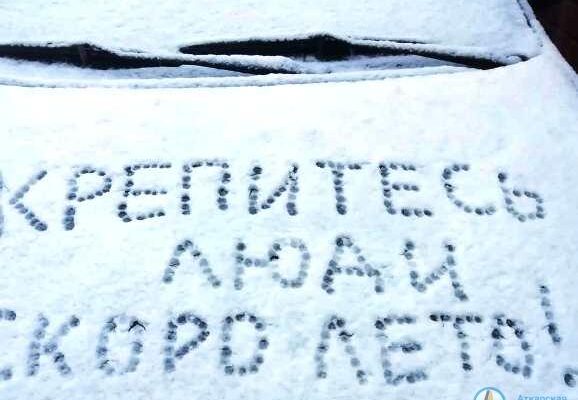 КРЕПИТЕСЬ
ЛЮДИ
СКОРО ЛЕТО!
Аткарская